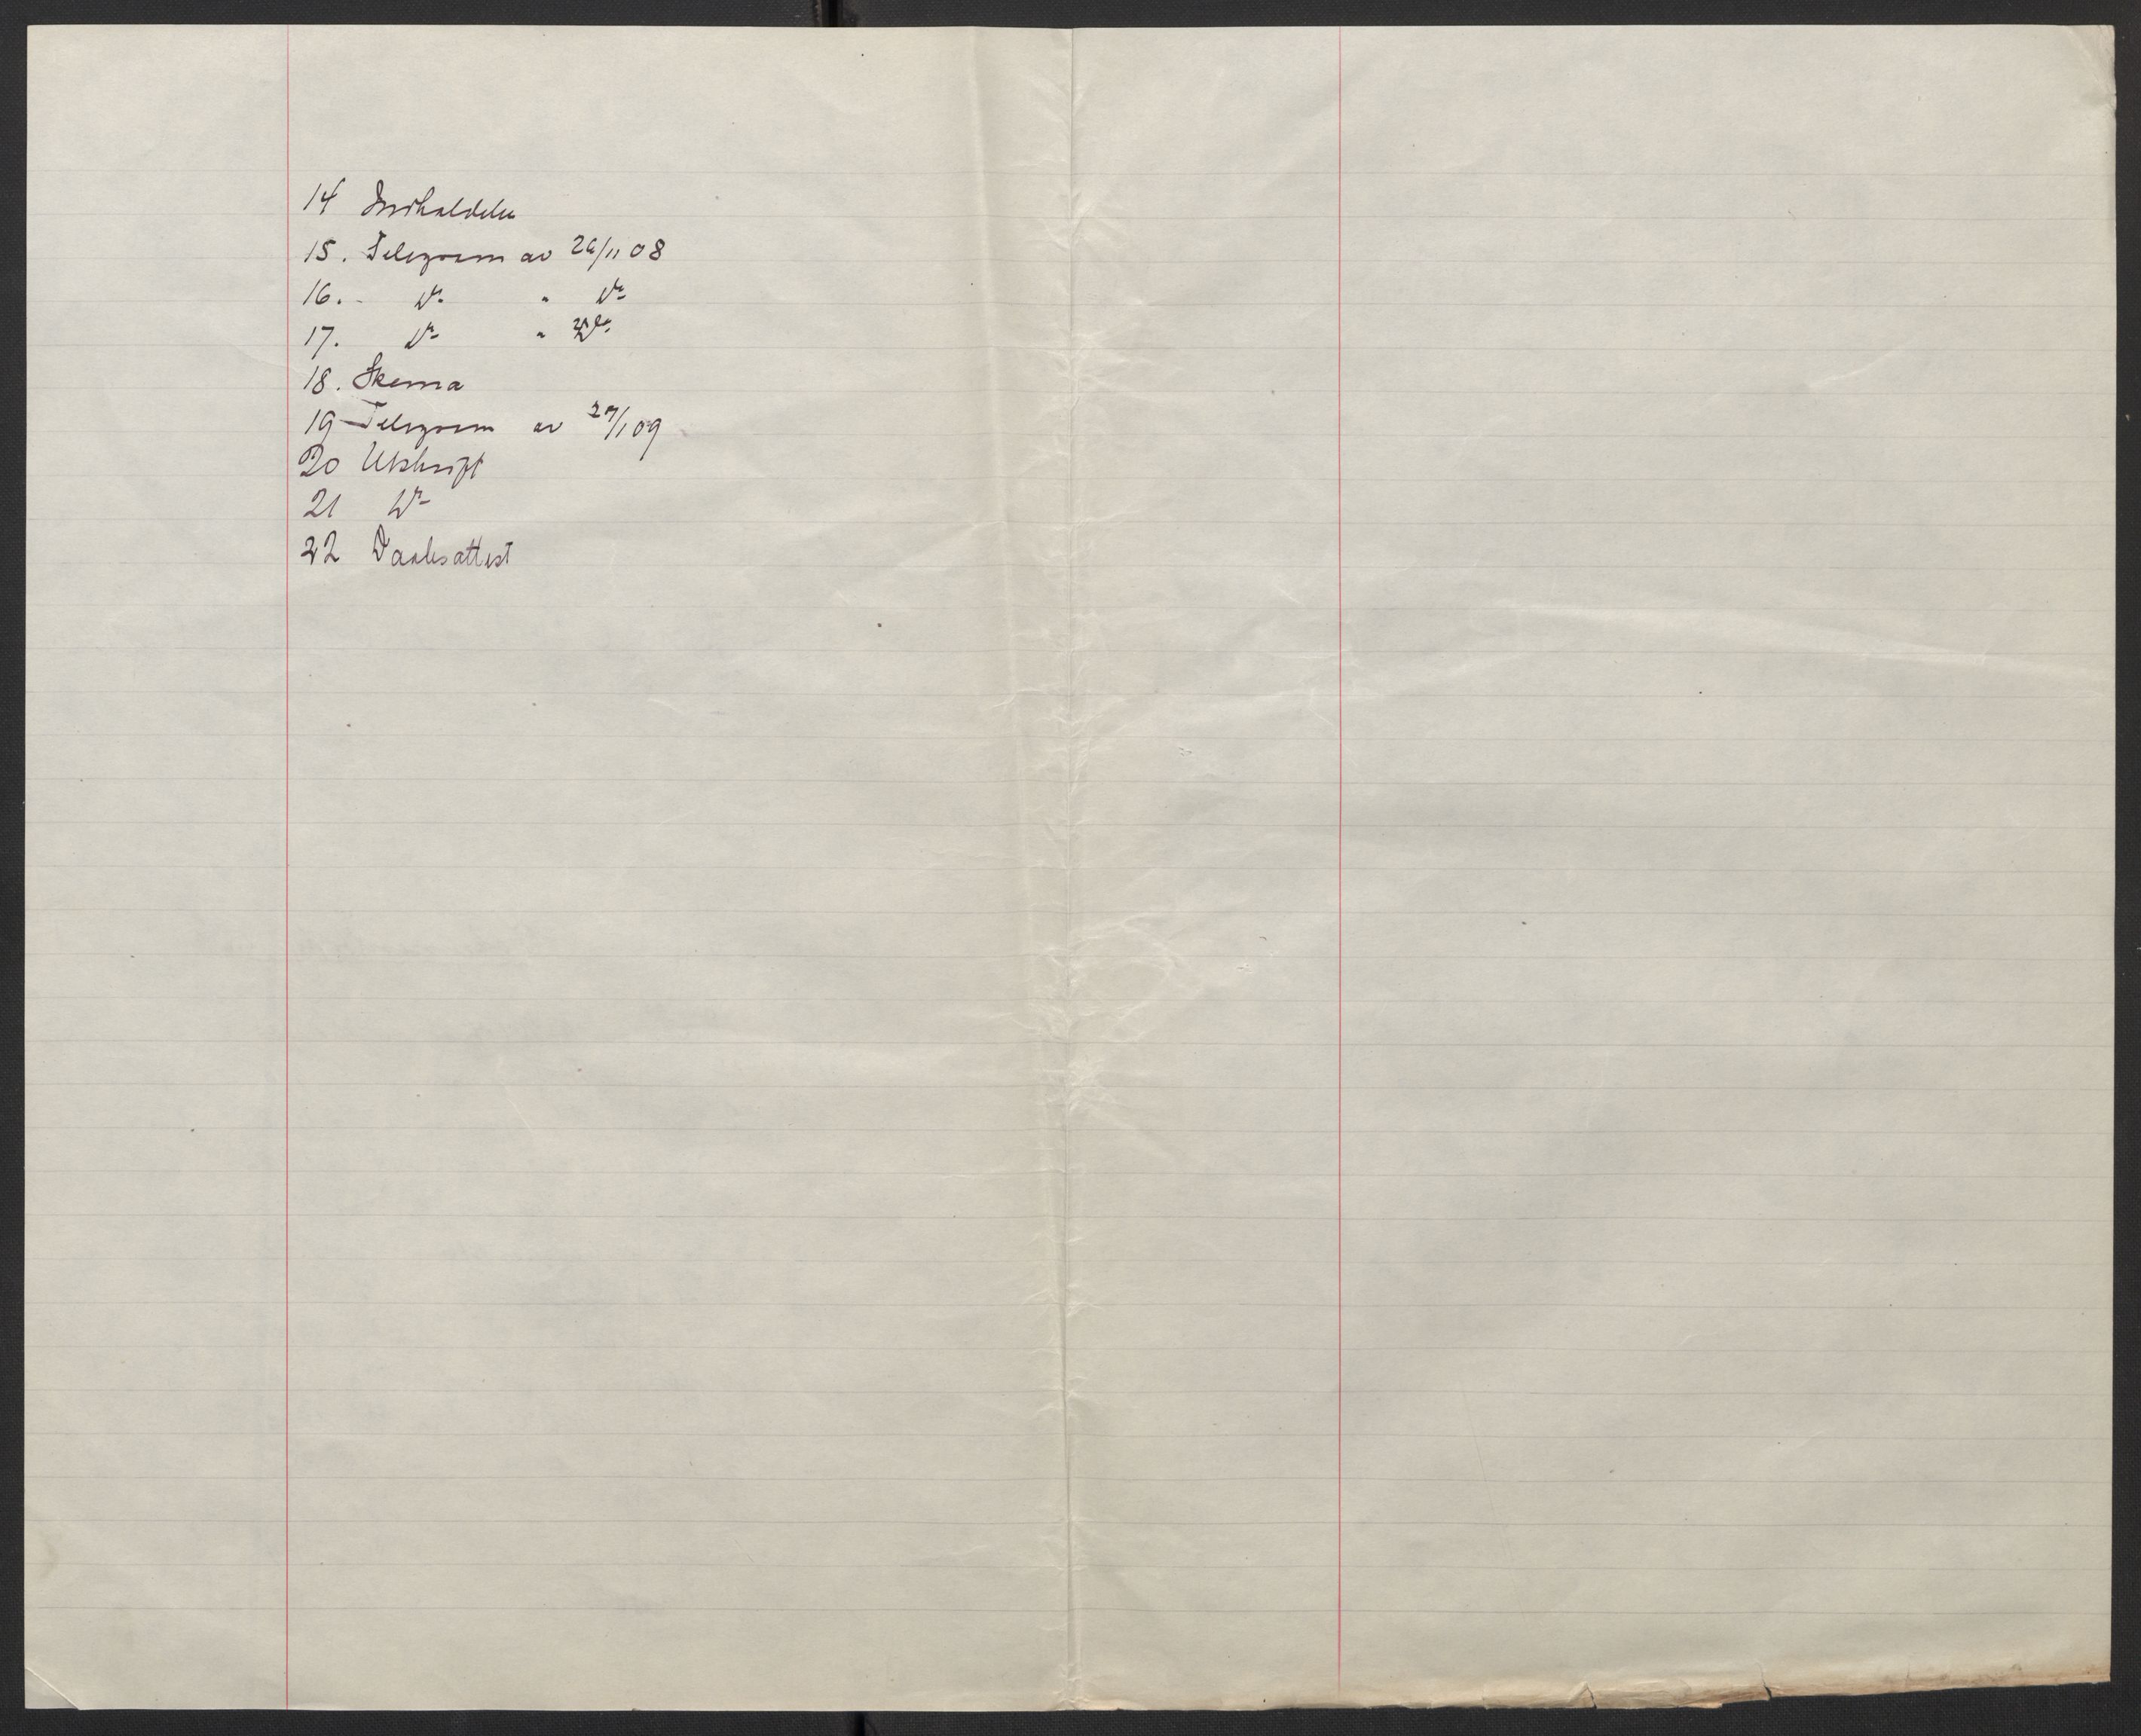 14 Indkaldelse
15. Telegram av 26/11 08
16. - do " do
17. do " do
18. Skema
19 Telegram av 27/1 09
20 Utskrift
21 do
22 Daabsattest